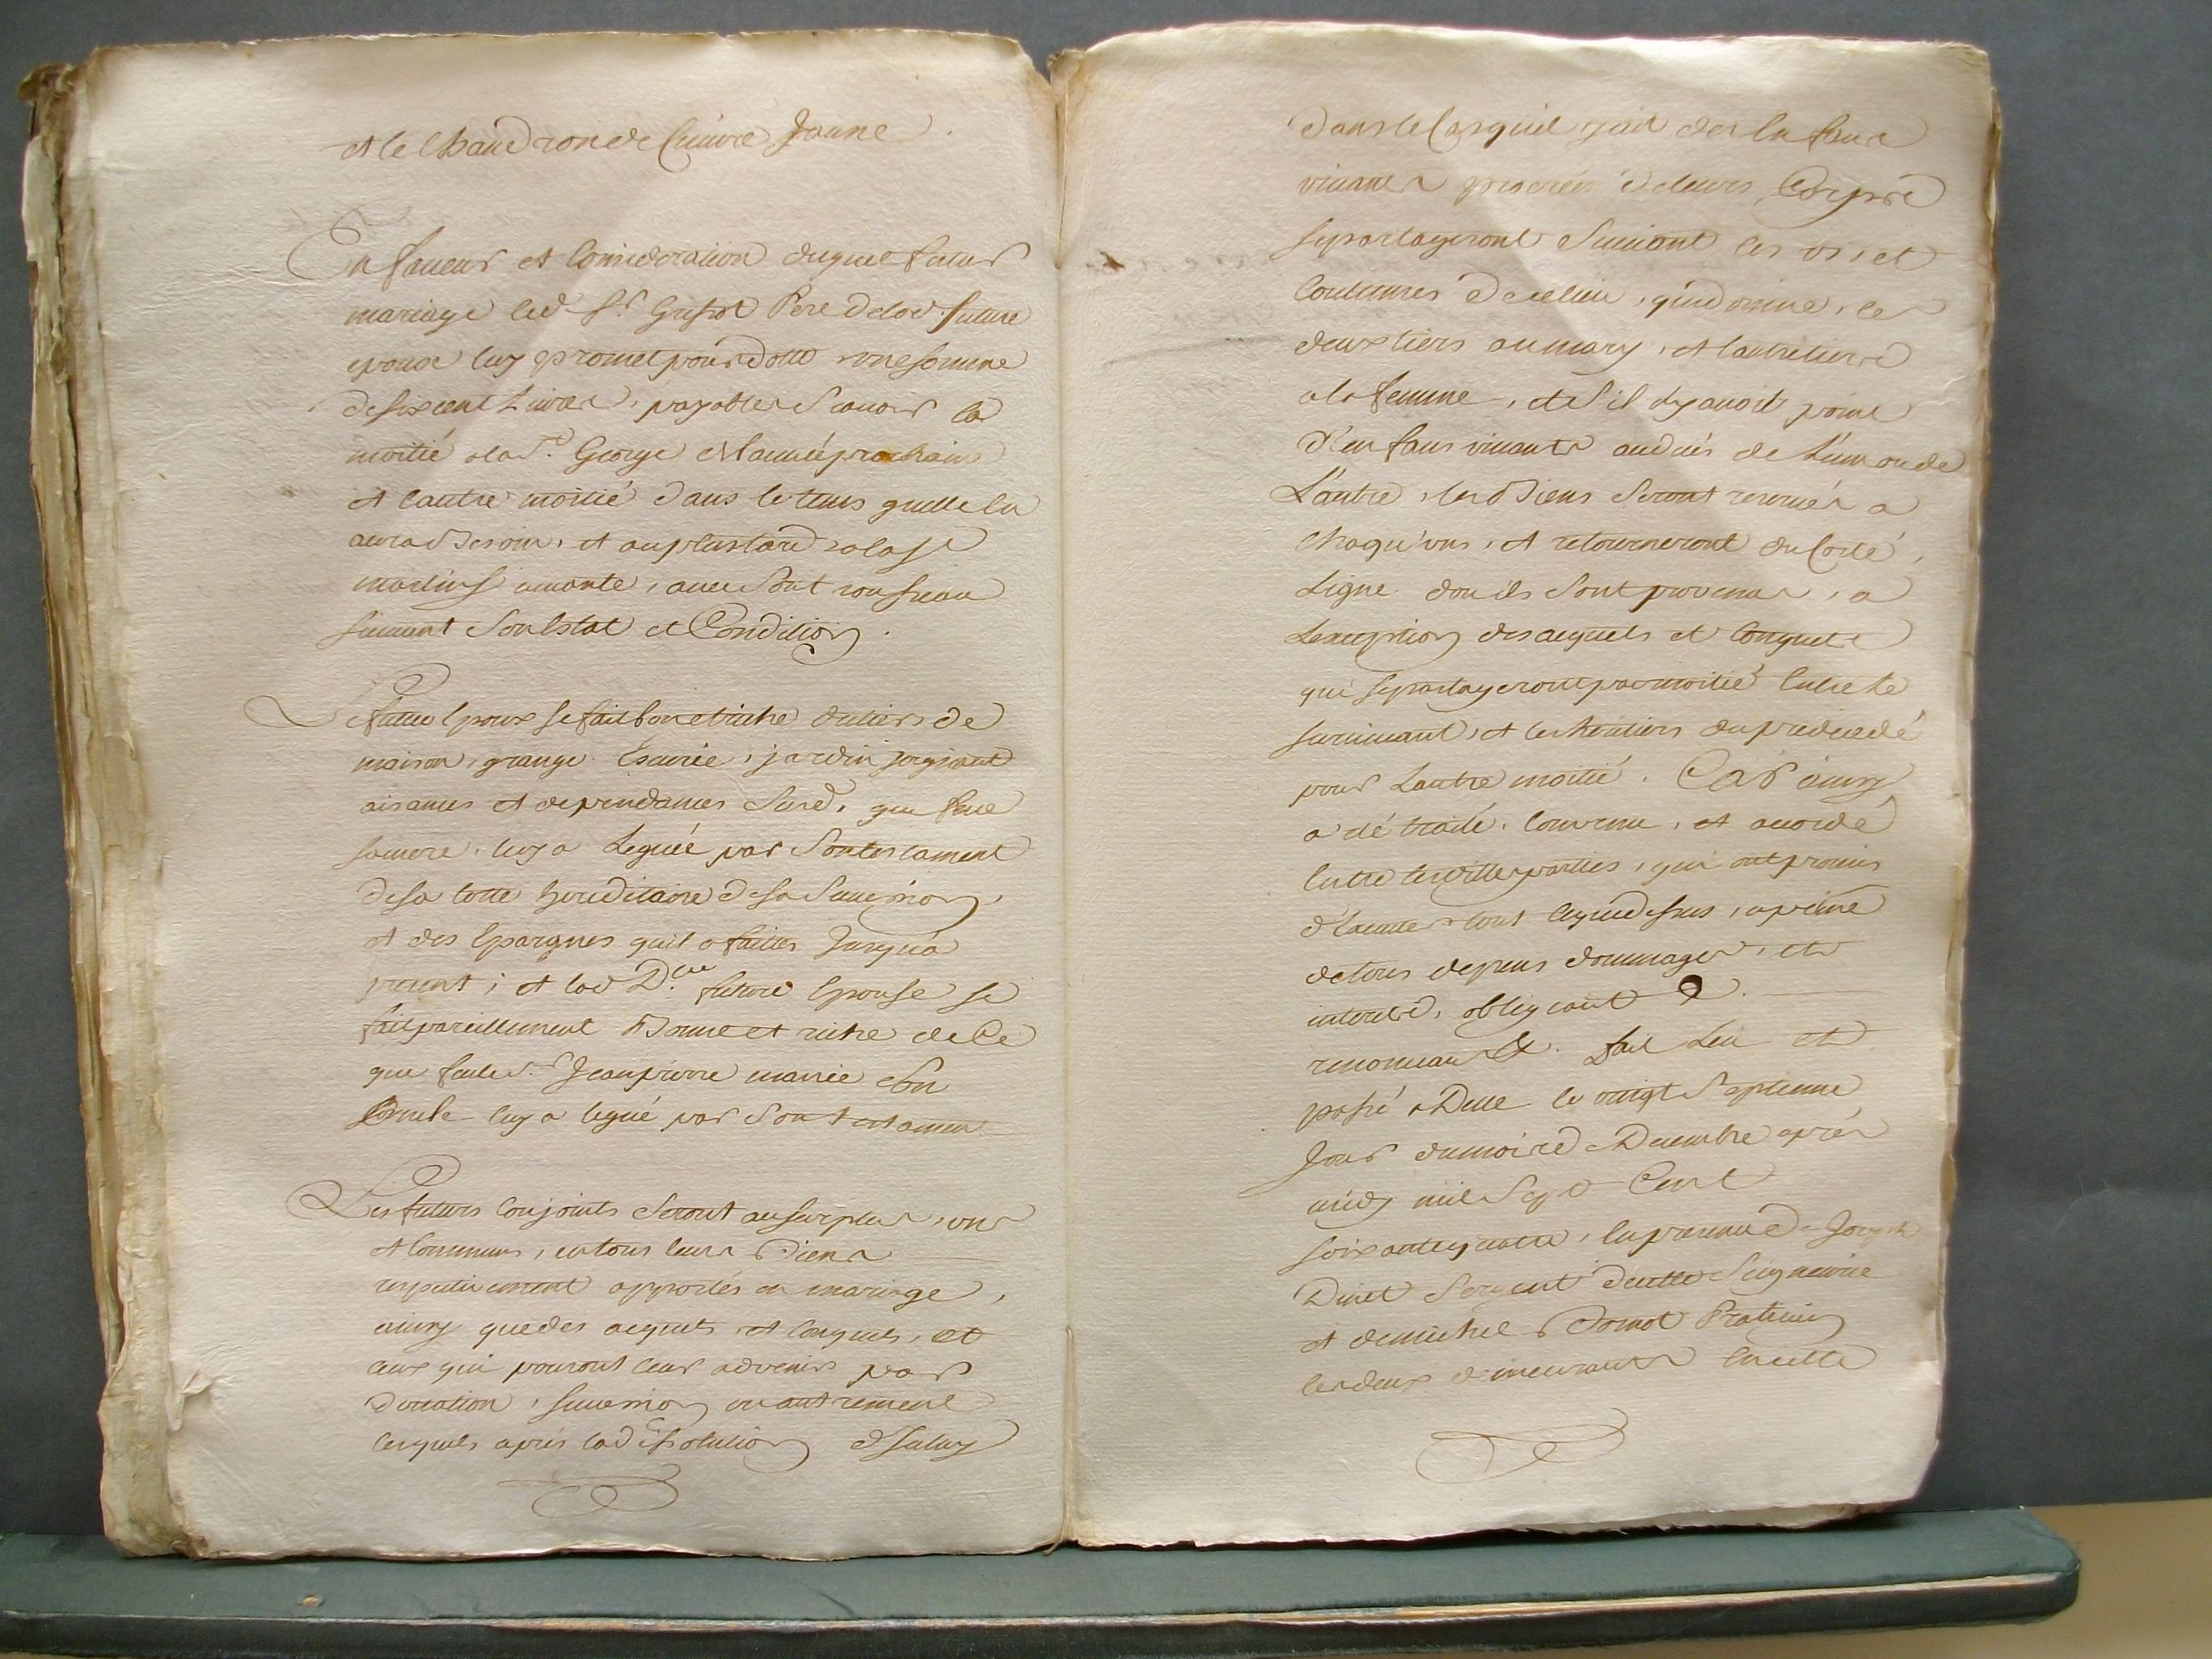 et le Chaudron de Cuivre Jaune.
En faveur et Consideration duquel futur
mariage led. Sr. Grisot Pere de lad. future
epouse luy promet pour dotte une somme
de six cent Livres, payables scavoir la
moitié a la St. George de l'année prochain
et l'autre moitié dans le tems quelle en
aura besoin, et au plus tard a la St
martin suivante, avec sont trousseau
suivant son Estat et Condition.
Le futur Epoux se fait bon et riche du tiers de
maison, grange Ecurie, jardin joignant
aisances et dependances sur d. que feue
sa mere luy a Legué par son testament
de sa cotte hereditaire de sa succession,
et des Epargnes quil a faittes Jusqu'a
present; et lad. Dlle. future Epouse se
fait pareillement Bonne et riche de Ce
que feu led. Sr. Jean pierre son
Oncle luy a legué par son testament
Les futurs Conjoints seront au surplus uns
et Communs, en tous leurs Biens
respectivement apportés en mariage,
ainsy que des acquets et Conquets, et
ceux qui pouront leur advenir par
donation, succession ou autrement
lesquels après la dissolution d'Iceluy
dans le Cas quil y ait des Enfans
vivants procréés de leurs Corps
se partageront suivant les us, et
Coutumes de ce lieu, qui donne, les
deux tiers au mary, et l'autre tiers
a la femme, et s'il n'y avoit point
d'enfans vivants au decés de l'un ou de
L'autre, les Biens seront reservés a
Chaqu'uns, et retourneront du Costé,
Ligne dou ils sont provenus, a
Lexception des acquets et Conquets
qui se partageront par moitié Entre le
survivant, et les heritiers du predecedé
pour Lautre moitié. Car ainsy
a été traité, Convenu, et accordé
Entre lesdittes parties, qui ont promis
d'Executer tout ce que dessus, a peine
de tous depens dommages, et
interets, obligeant &.
renonceant &. fait Leu et
passé a Delle le vingt Septieme
Jour du mois de Decembre après
midy mil Sept Cent
soixante quatre, En presence de Joseph
Dinet Sergent de cette Seigneurie
et de michel Praticien
les deux demeurants En cette